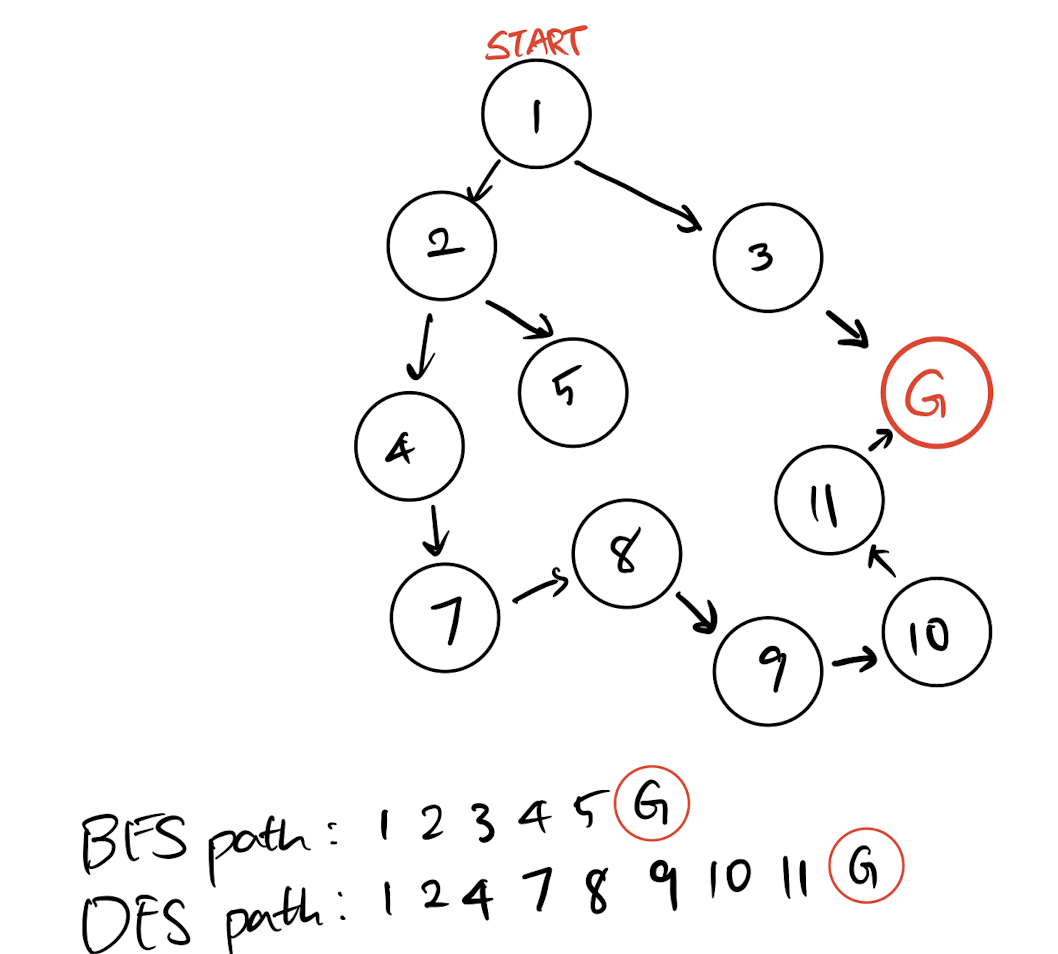 START
1
2
3
5
G
4
11
8
7
10
9
BFS path: 1 2 3 4 5 G
DFS path: 1 2 4 7 8 9 10 11 G